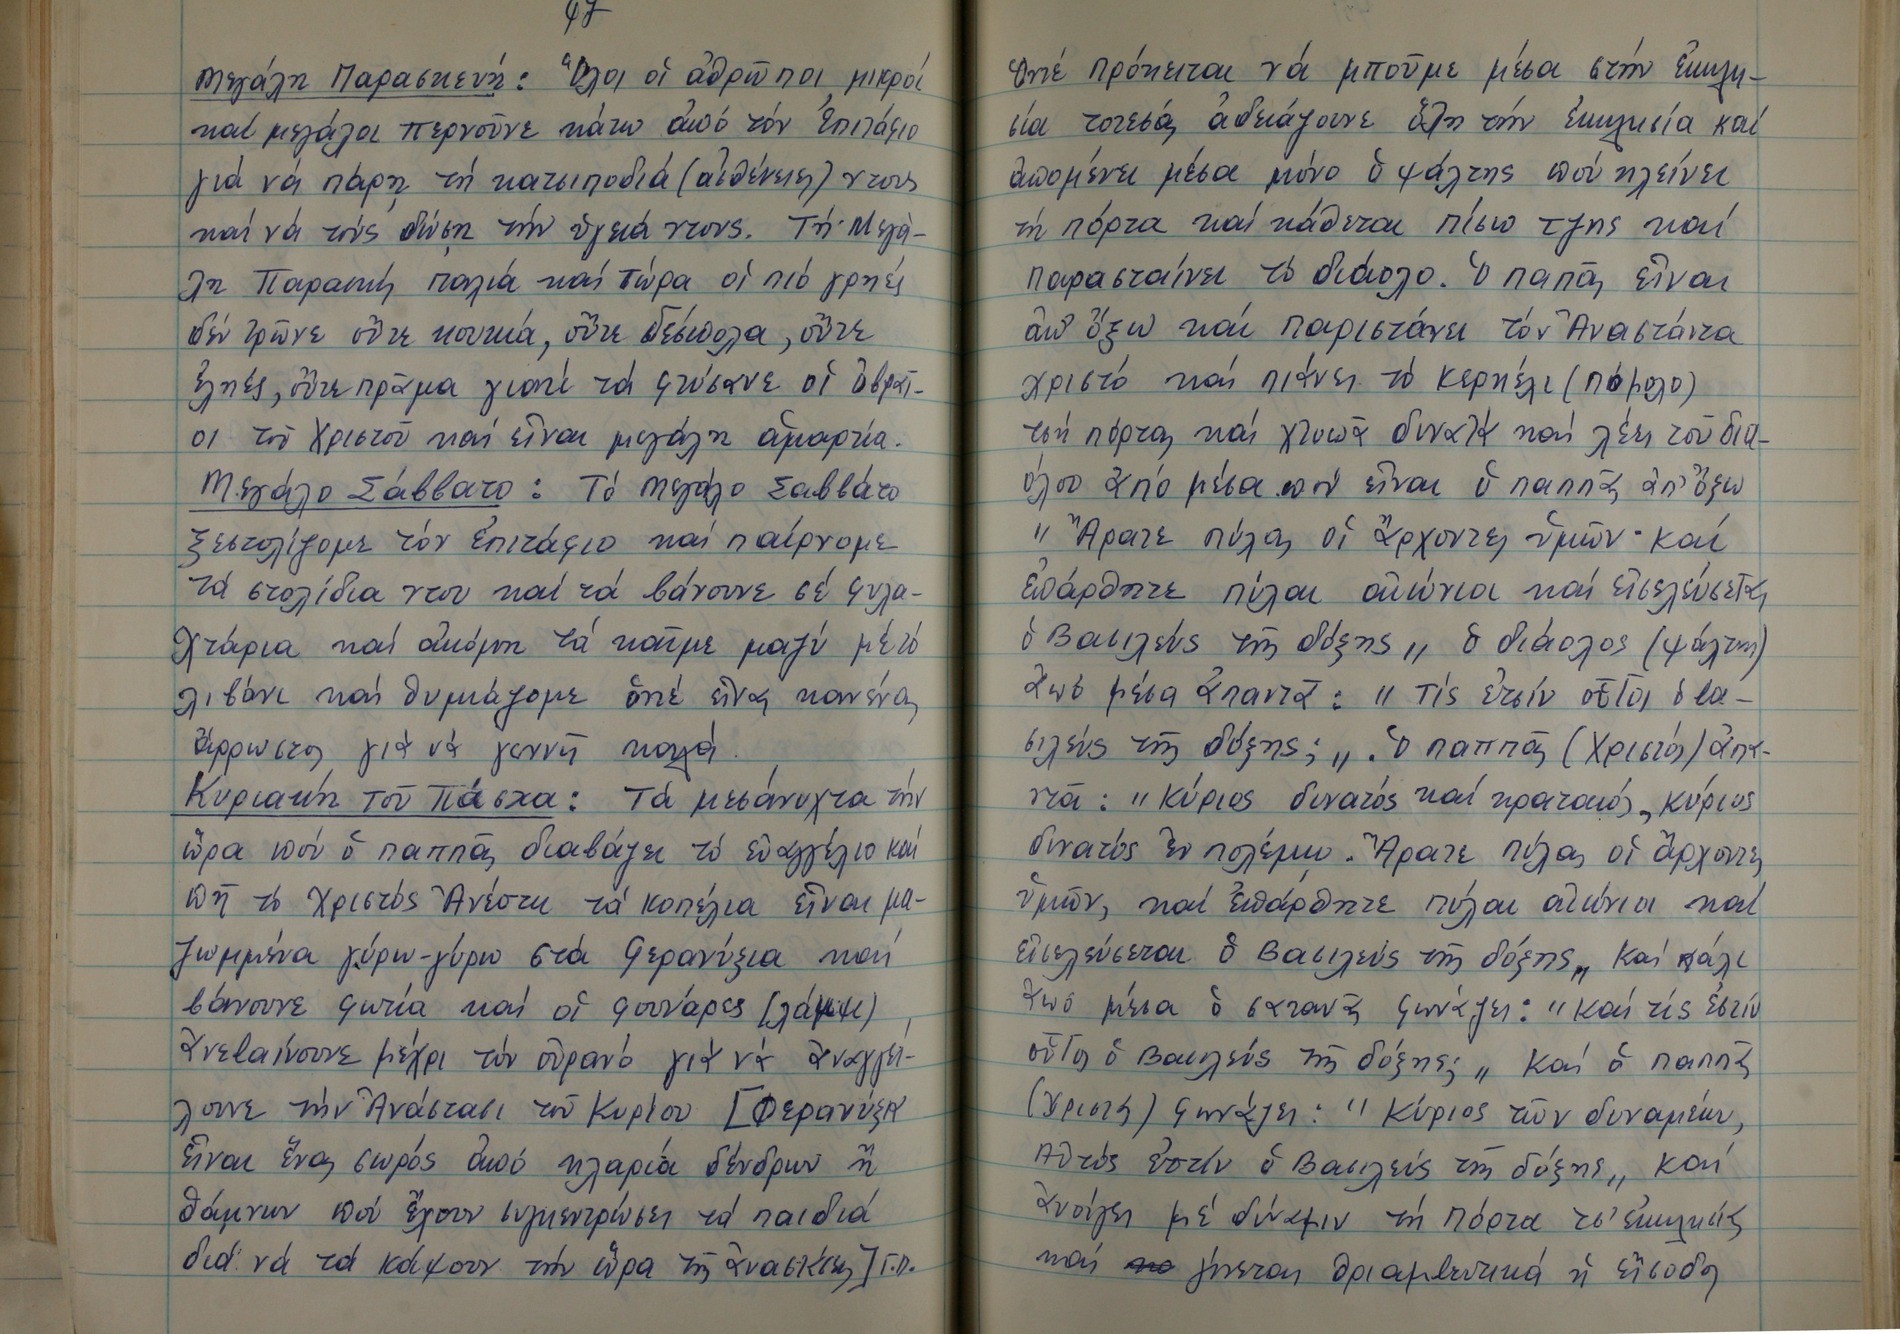 47
Μεγάλη Παρασκευή: Ὅλοι οἱ ἀθρῶποι μικροί
καί μεγάλοι περνοῦνε κάτω ἀπό τόν Ἐπιτάφιο
γιά νά πάρῃ τή κατσιποδιά (ἀσθένειες) ντους
καί νά τούς δώσῃ τήν ὑγειά ντους. Τή Μεγά-
λη Παρασκή παλιά καί τώρα οἱ πιό γρηές
δέν τρῶνε οὔτε κουκιά, οὔτε δέσπολα, οὔτε
ἐληές, οὔτε πρᾶμα γιατί τά φτύσανε οἱ Ὀβραῖ-
οι τοῦ Χριστοῦ καί εἶναι μεγάλη ἁμαρτία.
Μεγάλο Σάββατο: Τό Μεγάλο Σαββάτο
ξεστολίζομε τόν ἐπιτάφιο καί παίρνομε
τά στολίδια ντου καί τά βάνουνε σέ φυλα-
χτάρια καί ἀκόμη τά καῖμε μαζύ μέ τό
λιβάνι καί θυμιάζομε ὁπέ εἶναι κανένας
ἄρρωστος γιά νά γεννῆ καλά.
Κυριακή τοῦ Πάσχα: Τά μεσάνυχτα τήν
ὥρα πού ὁ παππᾶς διαβάζει τό εὐαγγέλιο καί
πῆ τό Χριστός Ἀνέστη τά κοπέλια εἶναι μα-
ζωμμένα γύρω-γύρω στά Φερανύξια καί
βάνουνε φωτιά καί οἱ φουνάρες (λάμψι)
ἀνεβαίνουνε μέχρι τόν οὐρανό γιά νά ἀναγγεί-
λουνε τήν Ἀνάστασι τοῦ Κυρίου [Φερανύξια
εἶναι ἕνας σωρός ἀπό κλαριά δένδρων ἤ
θάμνων πού ἔχουν συγκεντρώσει τά παιδιά
διά νά τά κάψουν τήν ὥρα τῆς ἀναστάσεως] Γ.Π.
Ὁπέ πρόκειται νά μποῦμε μέσα στήν ἐκκλη-
σία τοτεσάς ἀδειάζουνε ὅλη τήν ἐκκλησία καί
ἀπομένει μέσα μόνο ὁ ψάλτης πού κλείνει
τή πόρτα καί κάθεται πίσω τζης καί
παρασταίνει τό διάολο. Ὁ παπᾶς εἶναι
ἀπ' ὄξω καί παριστάνει τόν Ἀναστάντα
Χριστό καί πιάνει τό κερκέλι (πόμολο)
τσή πόρτας καί χτυπᾶ δυνατά καί λέει τοῦ δια-
όλου ἀπό μέσα πού εἶναι ὁ παππᾶς ἀπ' ὄξω
" Ἄρατε πύλας οἱ ἄρχοντες ὑμῶν· καί
ἐπάρθητε πύλαι αἰώνιοι καί εἰσελεύσεται
ὁ Βασιλεύς τῆς δόξης " ὁ διάολος (ψάλτης)
ἀπό μέσα ἀπαντᾶ: " Τίς ἐστίν οὗτος ὁ βα-
σιλεύς τῆς δόξης; " . Ὁ παππᾶς (Χριστός) ἀπα-
ντᾶ: " Κύριος δυνατός καί κραταιός, κύριος
δυνατός ἐν πολέμῳ. Ἄρατε πύλας οἱ ἄρχοντες
ὑμῶν, καί ἐπάρθητε πύλαι αἰώνιοι καί
εἰσελεύσεται ὁ Βασιλεύς τῆς δόξης " Καί πάλι
ἀπό μέσα ὁ σατανᾶς φωνάζει: " Καί τίς ἐστίν
οὗτος ὁ Βασιλεύς τῆς δόξης; " Καί ὁ παππᾶς
(Χριστός) φωνάζει: " Κύριος τῶν δυναμέων,
Αὐτός ἐστίν ὁ Βασιλεύς τῆς δόξης " Καί
ἀνοίγει μέ δύναμιν τή πόρτα τσ' ἐκκλησίας
καί γίνεται θριαμβευτικά ἡ εἴσοδος